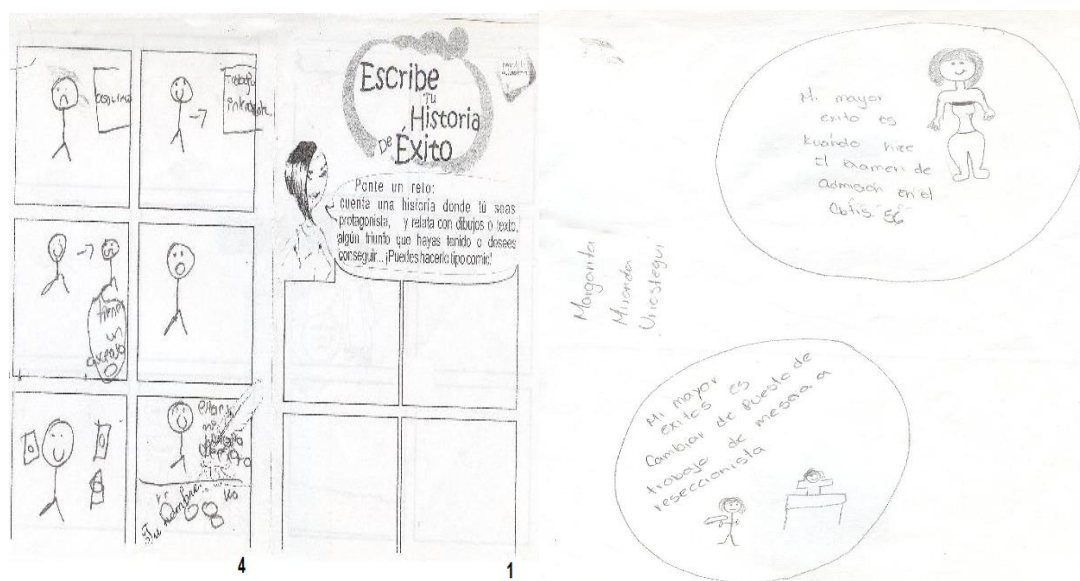 Trabajo
interesante
tiene
un
ascenso
Tu nombre...
4
Escribe
Tu
Historia
De Éxito
Ponte un reto:
cuenta una historia donde tú seas
protagonista, y relata con dibujos o texto,
algún triunfo que hayas tenido o desees
conseguir... ¡Puedes hacerlo tipo comic!
1
Mi mayor
exito es
kuando hize
el examen de
admision en el
Cbtis 56
Margarita
Miranda
Mi mayor
exitos es
Cambiar de puesto de
trabajo de mesera a
reseccionista